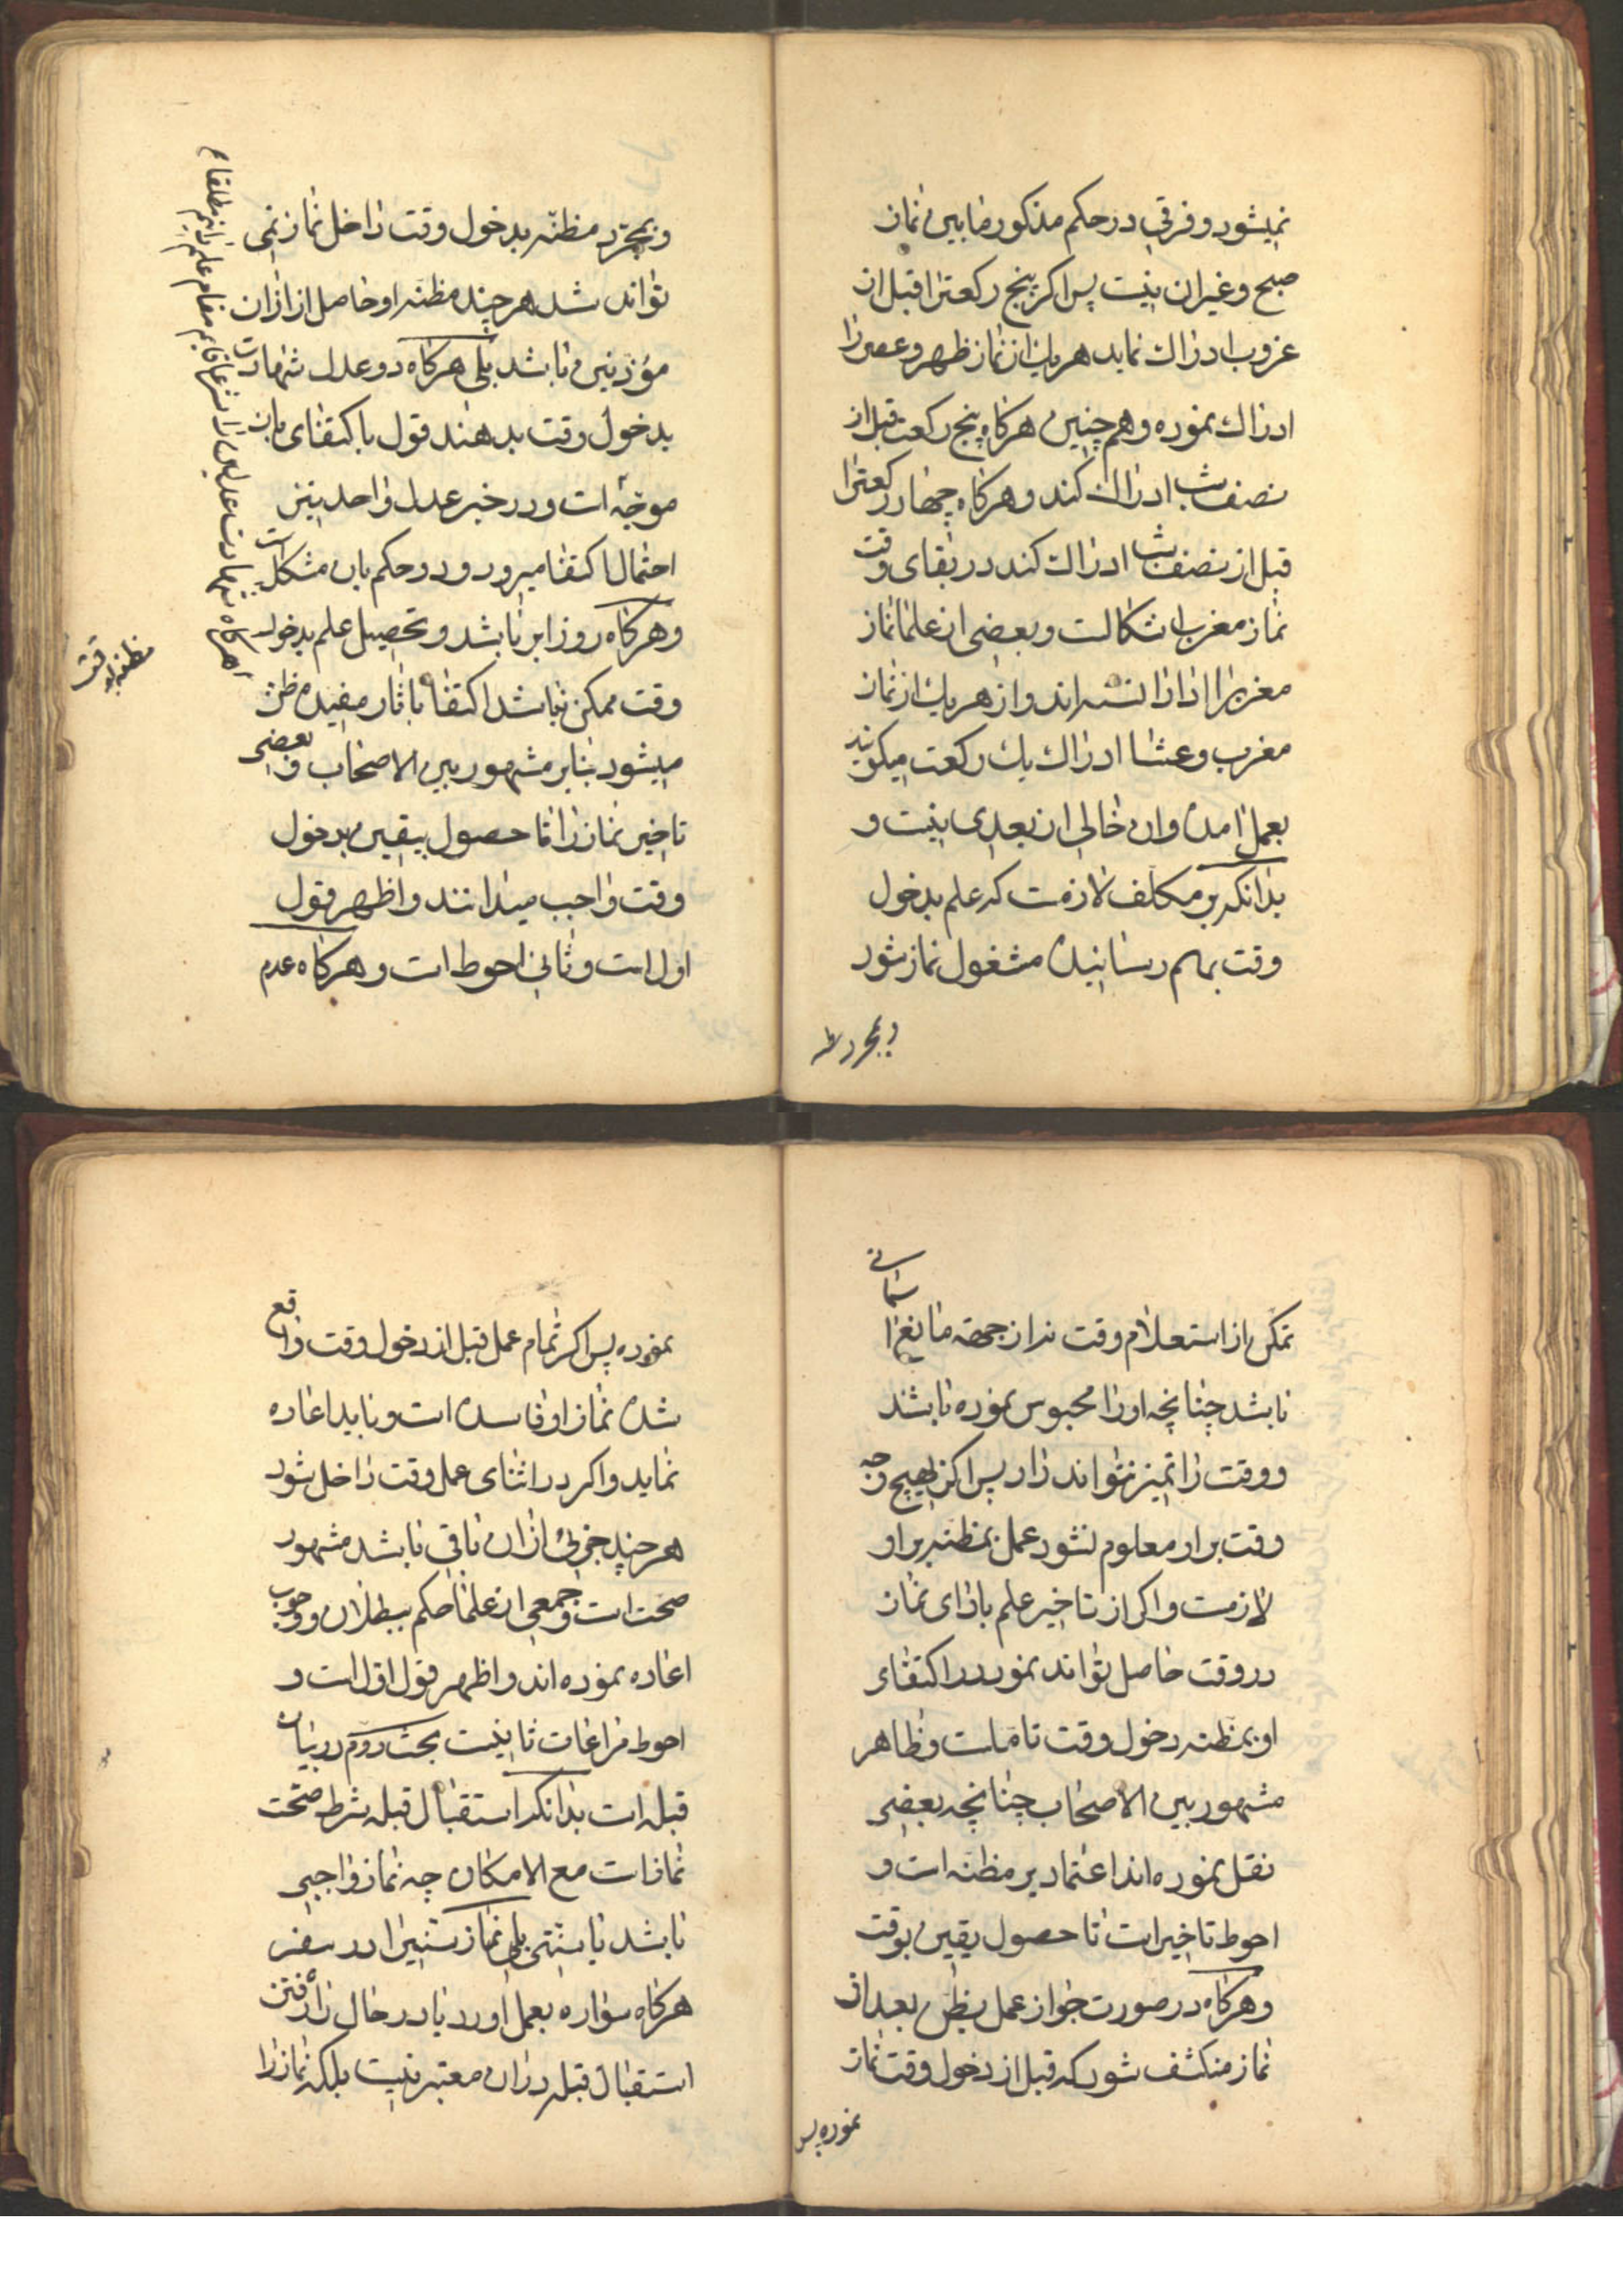 نمیشود و فرقی در حکم مذکور ما بین نماز
صبح و غیر ان نیست پس اکر پنج رکعترا قبل از
غروب ادراک نماید هر یک از نماز ظهر و عصر را
ادراک نموده و هم چنین هرکاه پنج رکعت قبل از
نصف شب ادراک کند و هرکاه چهار رکعترا
قبل از نصف شب ادراک کند در بقای وقت
نماز مغرب اشکالست و بعضی از علما نماز
مغربرا ادا دانسته اند و از هر یک از نماز
مغرب و عشا ادراک یک رکعت میکویند
بعمل امده و ان خالی از بعدی نیست و
بدانکه بر مکلف لازمست که علم بدخول
وقت بهم رسانیده مشغول نماز شود
و بمجرد مظنه
و بمجرّد مظنّه بدخول وقت داخل نماز نمی
تواند شد هر چند مظنه او حاصل از اذان
مؤذنین باشد بلی هرکاه دو عدل شهادت
بدخول وقت بدهند قول باکتفای بان
موجّه است و در خبر عدل واحد نیز
احتمال اکتفا میرود و حکم بان مشکل است
و هرکاه روز ابر باشد و تحصیل علم بدخول
وقت ممکن نباشد اکتفا باثار مفیده ظن
میشود بنابر مشهور بین الاصحاب و بعضی
تاخیر نماز را تا حصول یقین بدخول
وقت واجب میدانند و اظهر قول
اول است و ثانی احوط است و هرکاه عدم
هرکاه شهادت عدلین را شرعا قایم مقام علم دانیم مطلقا
تمکن از استعلام وقت نه از جهة مانع
سمائی
باشد چنانچه او را محبوس نموده باشند
و وقت را تمیز نتواند داد پس اکر بهیچ وجه
وقت بر او معلوم نشود عمل بمظنه بر او
لازمست و اکر از تاخیر علم بادای نماز
در وقت حاصل تواند نمود در اکتفای
او بمظنه دخول وقت تاملست و ظاهر
مشهور بین الاصحاب چنانچه بعضی
نقل نموده اند اعتماد بر مظنه است و
احوط تاخیر است تا حصول یقین بوقت
و هرکاه در صورت جواز عمل بظن بعد از
نماز منکشف شود که قبل از دخول وقت نماز
نموده پس
نموده پس اکر تمام عمل قبل از دخول وقت واقع
شده نماز او فاسده است و باید اعاده
نماید و اکر در اثنای عمل وقت داخل شود
هر چند جزئی از ان باقی باشد مشهور
صحت است و جمعی از علما حکم ببطلان و وجوب
اعاده نموده اند و اظهر قول اول است و
احوط مراعات ثانیست بحث دوم در بیان
قبله است بدانکه استقبال قبله شرط صحّت
نماز است مع الامکان چه نماز واجبی
باشد یا سنتی بلی نماز سنتیرا در سفر
هرکاه سواره بعمل اورد یا در حال راه رفتن
استقبال قبله در ان معتبر نیست بلکه نماز را